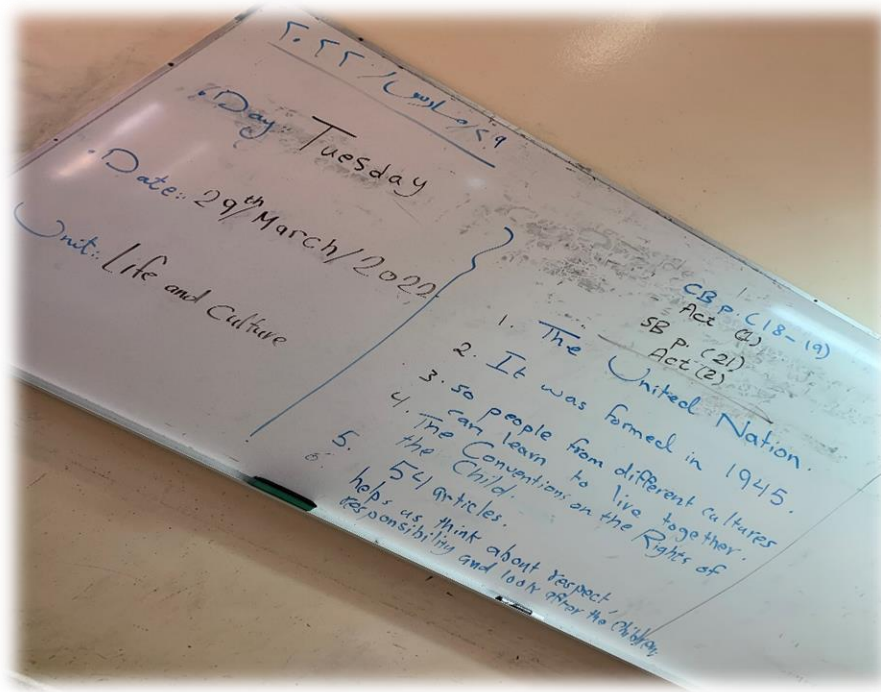 ٢٩/مارس/٢٠٢٢
Day:. Tuesday
Date:. 29th/March/2022
Unit:. Life and Culture
CB p. (18-19)
Act (1)
SB p. (21)
Act (2)
1. The United Nation.
2. It was formed in 1945.
3. so people from different cultures
can learn to live together.
4. The Conventions on the Rights of
the Child.
5. 54 articles.
6. helps us think about respect,
responsibility and look after the children